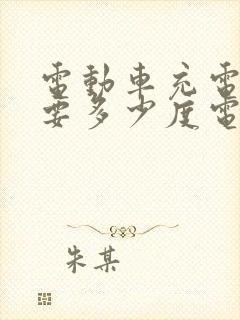 電動車充電
要多少度電
朱某